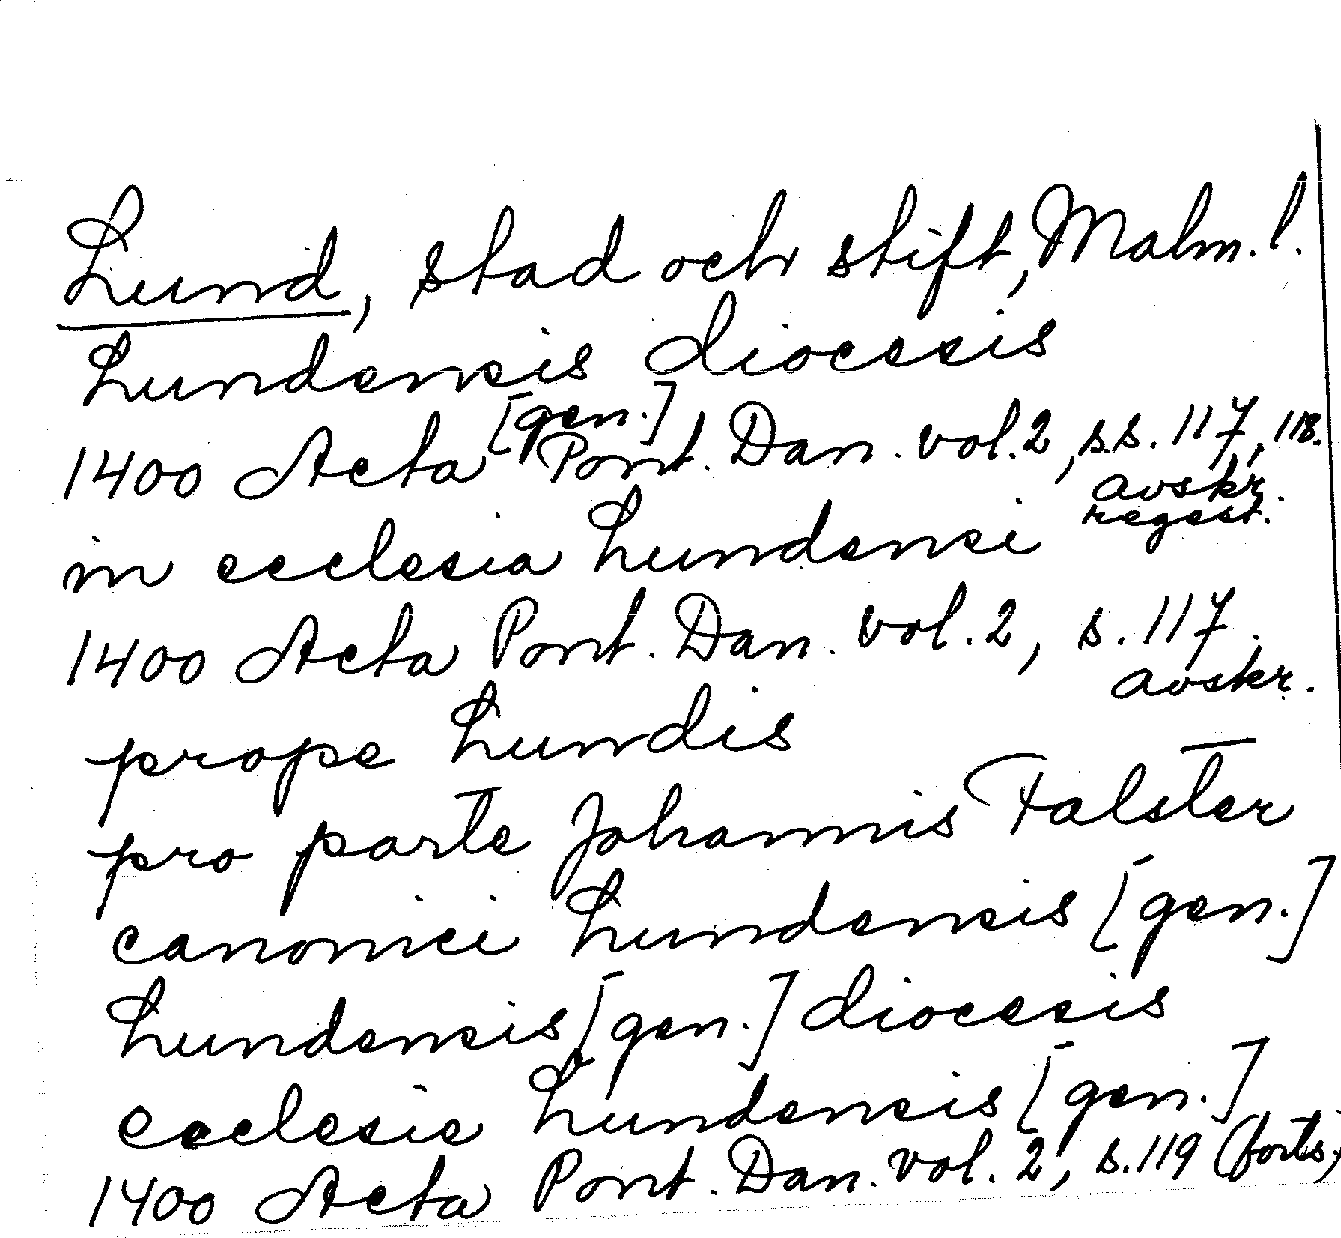 Lund, stad och stift, Malm. l.
Lundensis diocesis
[gen.]
1400 Acta Pont. Dan. vol. 2, s.s. 117, 118.
avskr.
regest.
in ecclesia Lundensi
1400 Acta Pont. Dan. vol. 2, s. 117.
avskr.
prope Lundis
pro parte Johannis Falster
canonici Lundensis [gen.]
Lundensis [gen.] diocesis
ecclesie Lundensis [gen.]
1400 Acta Pont. Dan. vol. 2, s. 119 (forts.)